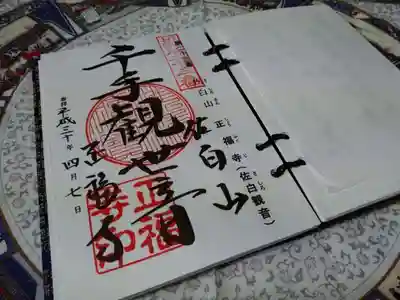 佐白山
佐白山 正福寺(佐白観音)
千手観世音
正福寺
平成三十年 四月七日
正福寺印